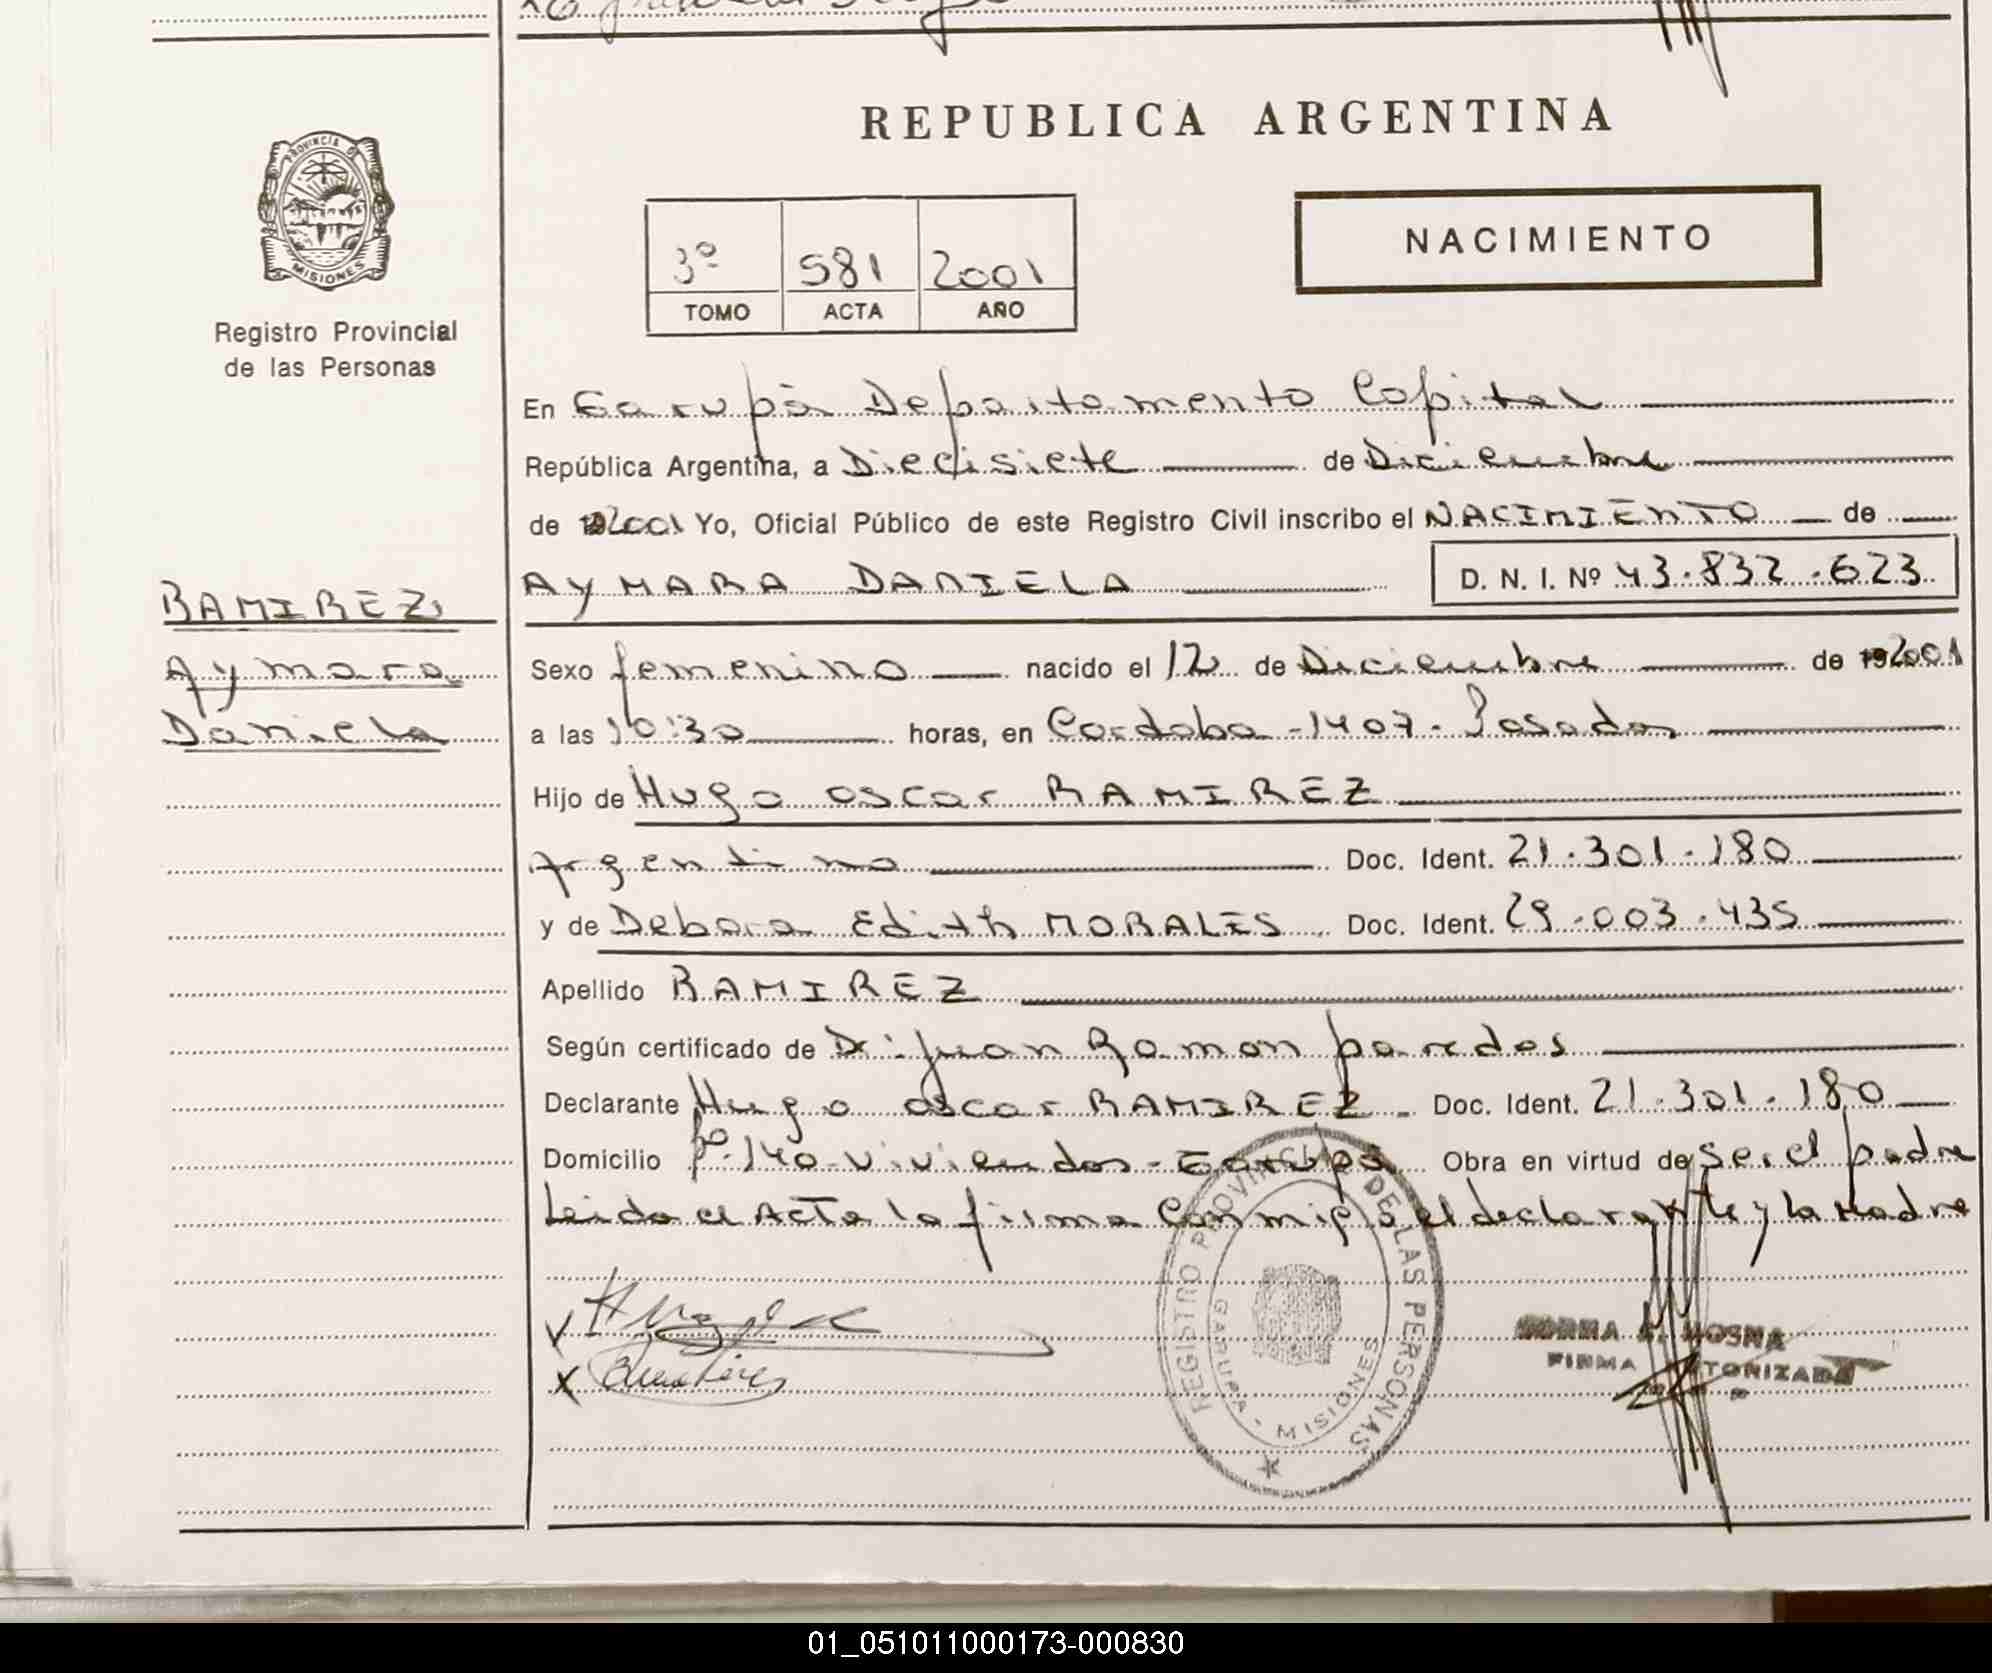 REPUBLICA ARGENTINA
PROVINCIA DE
MISIONES
Registro Provincial
de las Personas
3º 581 2001
TOMO ACTA AÑO
NACIMIENTO
En Garupá Departamento Capital
República Argentina, a Diecisiete de Diciembre
de 2001 Yo, Oficial Público de este Registro Civil inscribo el NACIMIENTO de
AYMARA DANIELA D. N. I. Nº 43.832.623
RAMIREZ
Aymara
Daniela
Sexo femenino nacido el 12 de Diciembre de 192001
a las 10:30 horas, en Cordoba -1407- Posadas
Hijo de Hugo Oscar RAMIREZ
Argentino Doc. Ident. 21.301.180
y de Debora Edith MORALES Doc. Ident. 29.003.435
Apellido RAMIREZ
Según certificado de Dr. Juan Ramon paredes
Declarante Hugo Oscar RAMIREZ - Doc. Ident. 21.301.180
Domicilio Bº 140 Viviendas - Garupá Obra en virtud de ser el padre
Leida el Acta la firma Conmigo el declarante y la Madre
REGISTRO PROVINCIAL DE LAS PERSONAS
GARUPA - MISIONES
NORMA A. MOSNA
FIRMA AUTORIZADA
01_051011000173-000830